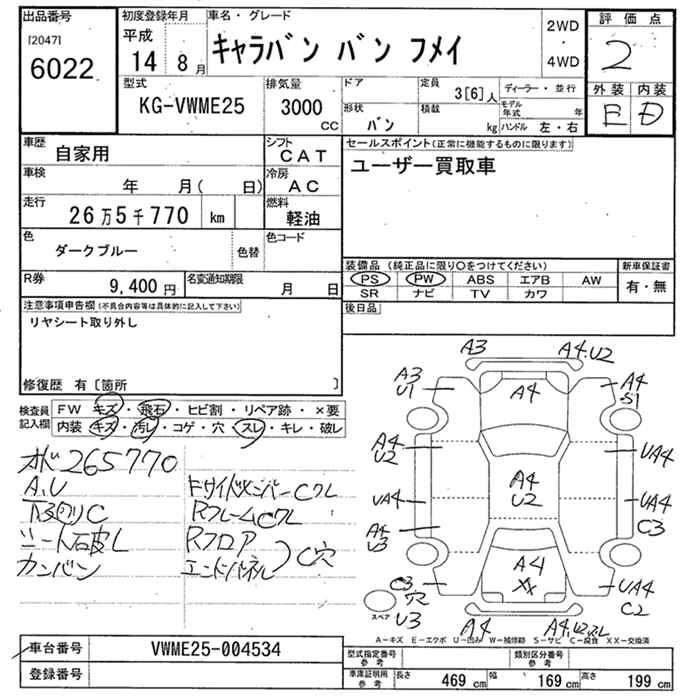 出品番号
[2047]
6022
初度登録年月
平成
14 8月
車名・グレード
キャラバン バン フメイ
2WD
・
4WD
評価点
2
外装 内装
E D
型式
KG-VWME25
排気量
3000
CC
ドア
形状
バン
定員
3[6]人
積載
kg
ディーラー・並行
モデル年式 年
ハンドル 左・右
車歴
自家用
シフト
CAT
車検
年 月( 日)
冷房
AC
走行
26万5千770 km
燃料
軽油
色
ダークブルー
色替
色コード
R券
9,400円
名変通知期限
月 日
セールスポイント(正常に機能するものに限ります)
ユーザー買取車
装備品 (純正品に限り○をつけてください)
PS PW ABS エアB AW
SR ナビ TV カワ
新車保証書
有・無
後日品
注意事項申告欄(不具合内容等は具体的に記入して下さい)
リヤシート取り外し
修復歴 有〔箇所 〕
検査員
記入欄
FW キズ・飛石・ヒビ割・リペア跡・×要
内装 キズ・汚レ・コゲ・穴・スレ・キレ・破レ
メーター 265770
A,U
下回りC
シート破レ
カンバン
RサイドメンバーCクレ
RフレームCクレ
Rフロア
エンドパネル
C穴
A3 A4,U2
A3 A4 A4
U1 S1
A4 UA4
U2
A4
U2
UA4 UA4
A4 C3
U3
A4
XX
C3 UA4
穴 C2
U3
スペア
A4
A-キズ E-エクボ U-凹み W-補修跡 S-サビ C-腐食 XX-交換済
車台番号
VWME25-004534
登録番号
型式指定番号
参考
類別区分番号
参考
車庫証明用
参考
長さ 469 cm 幅 169 cm 高さ 199 cm